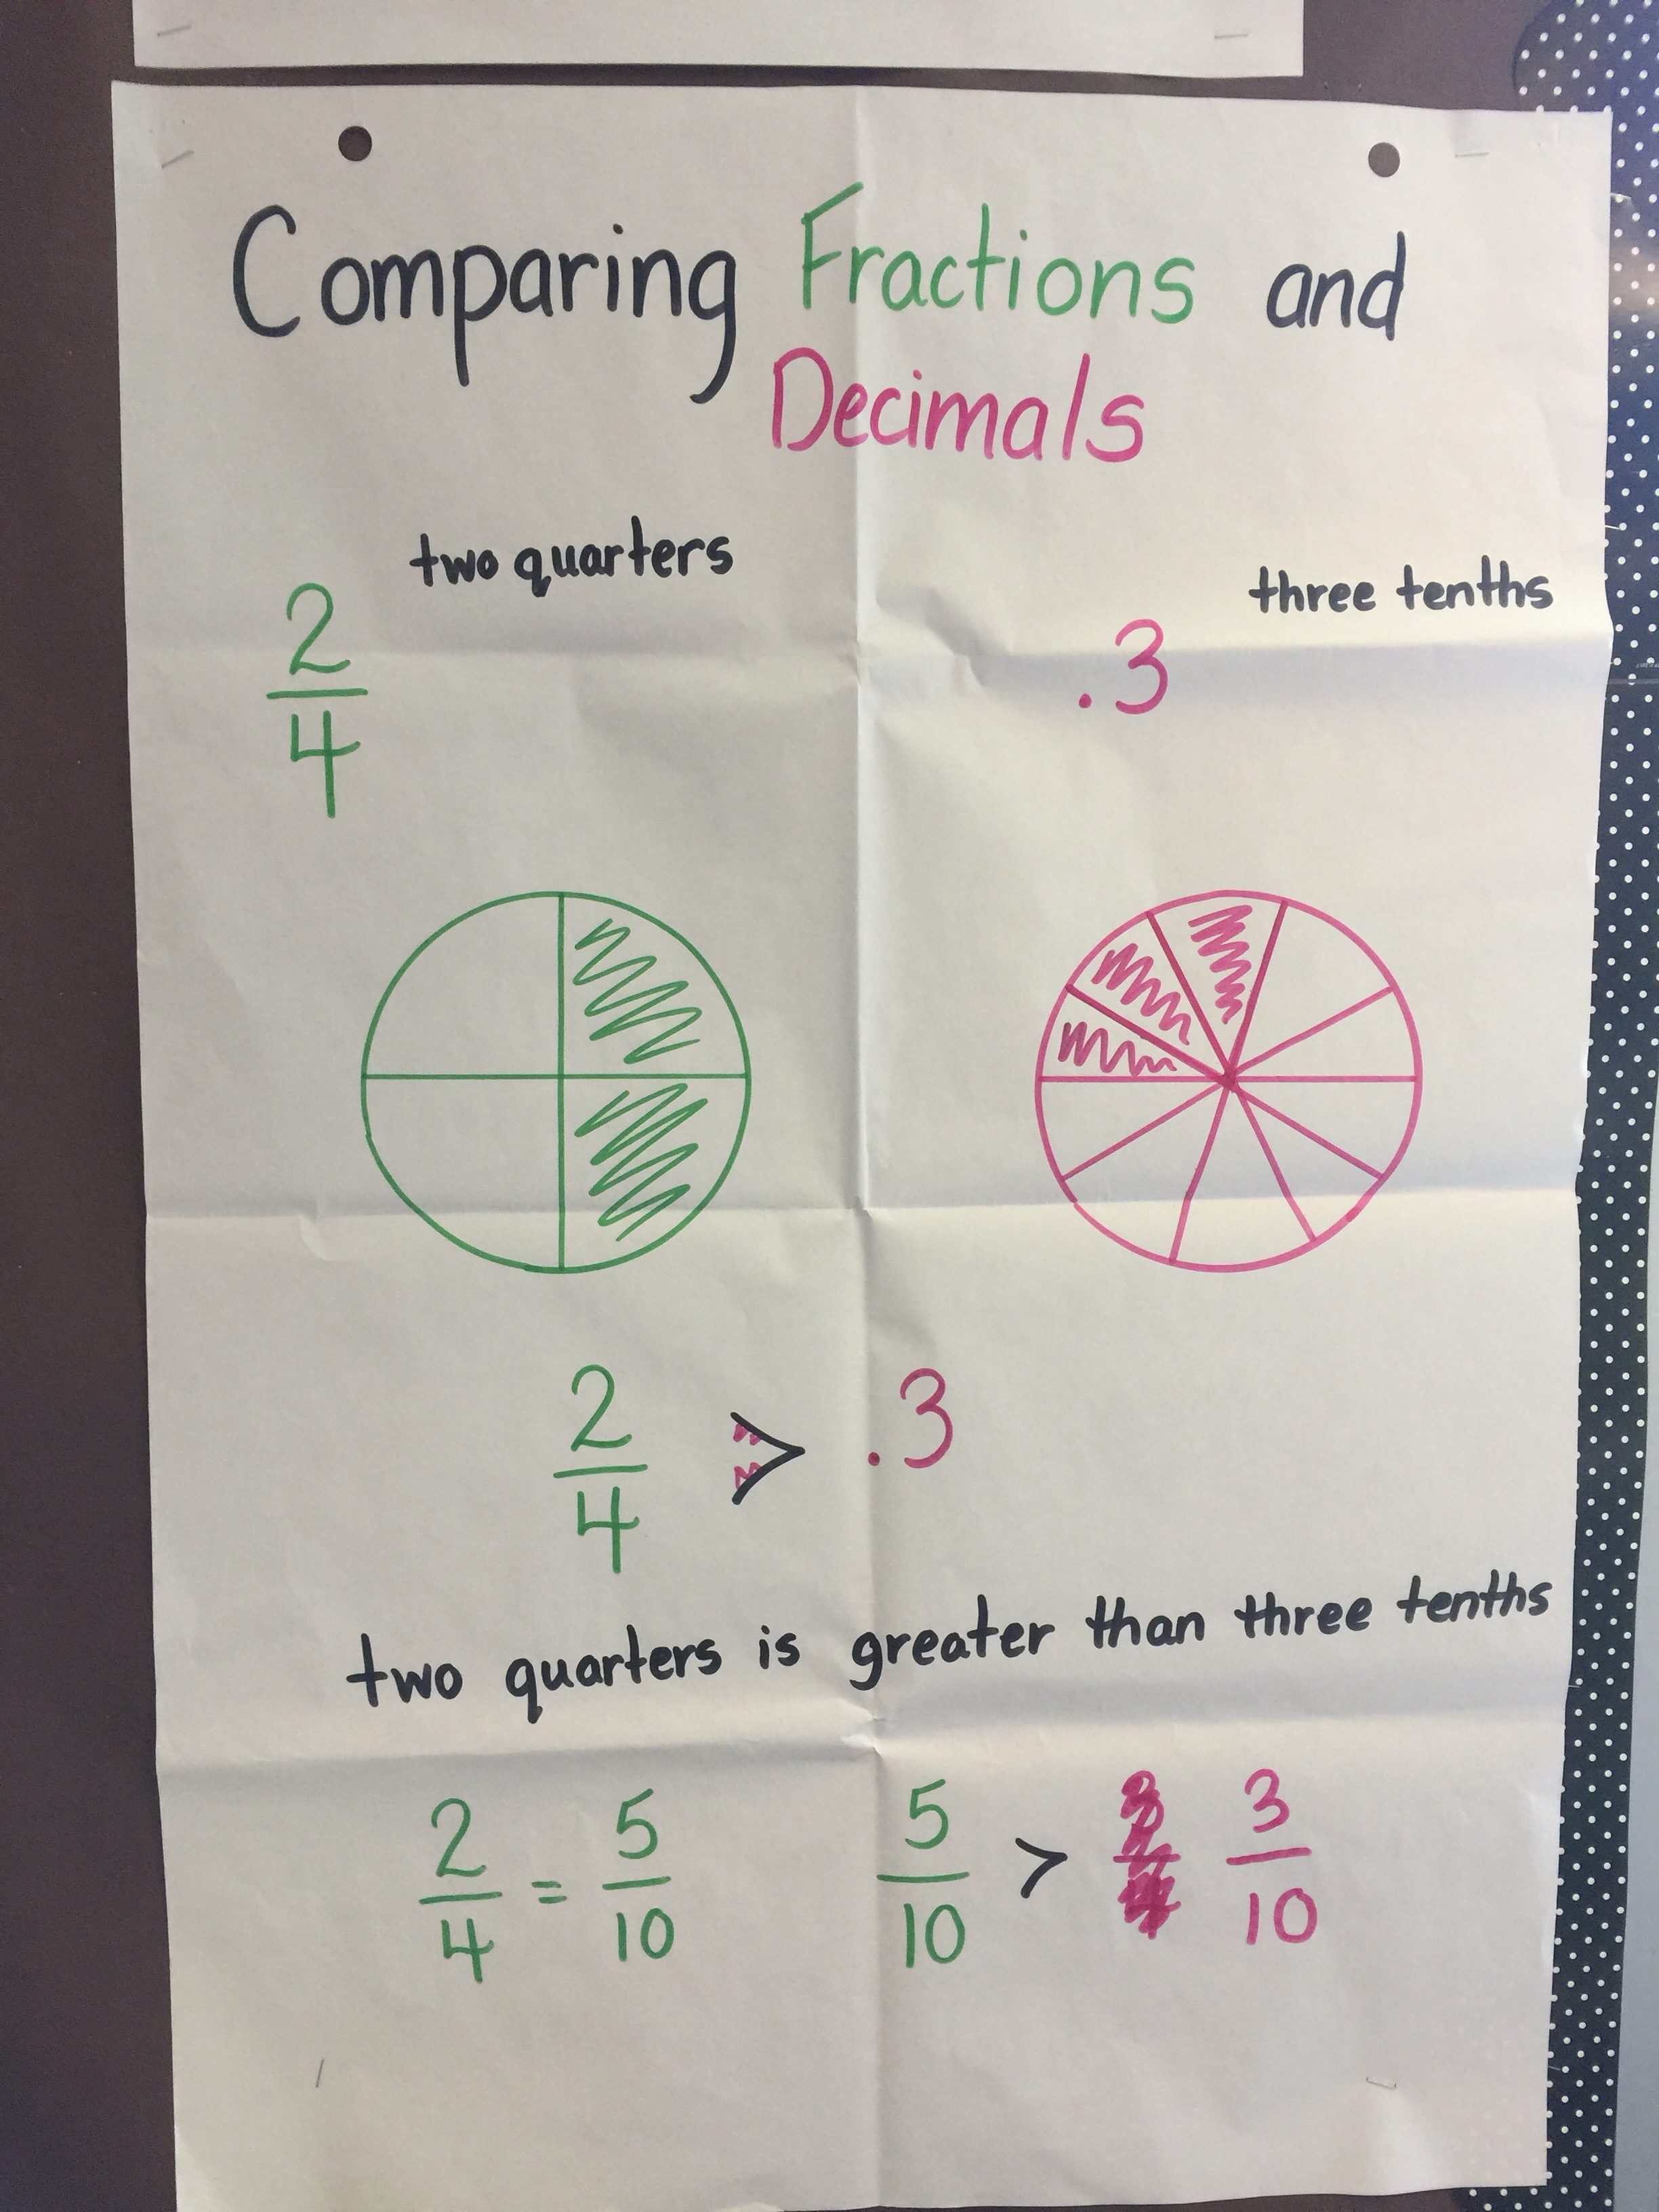 Comparing Fractions and
Decimals
two quarters
three tenths
2/4
.3
2/4 > .3
two quarters is greater than three tenths
2/4 = 5/10
5/10 > 3/10